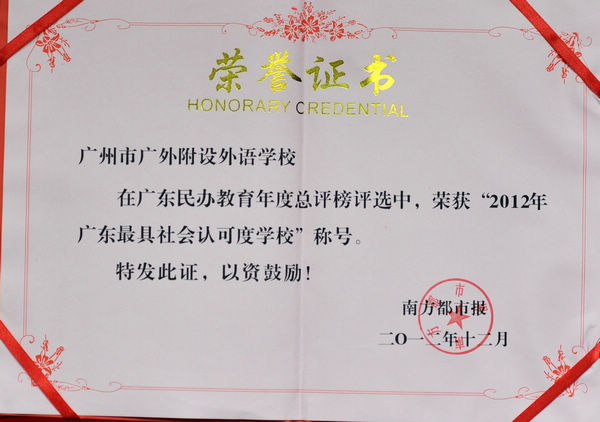 荣誉证书
HONORARY CREDENTIAL
广州市广外附设外语学校
在广东民办教育年度总评榜评选中，荣获“2012年
广东最具社会认可度学校”称号。
特发此证，以资鼓励！
南方都市报
南方都市报
二〇一二年十二月